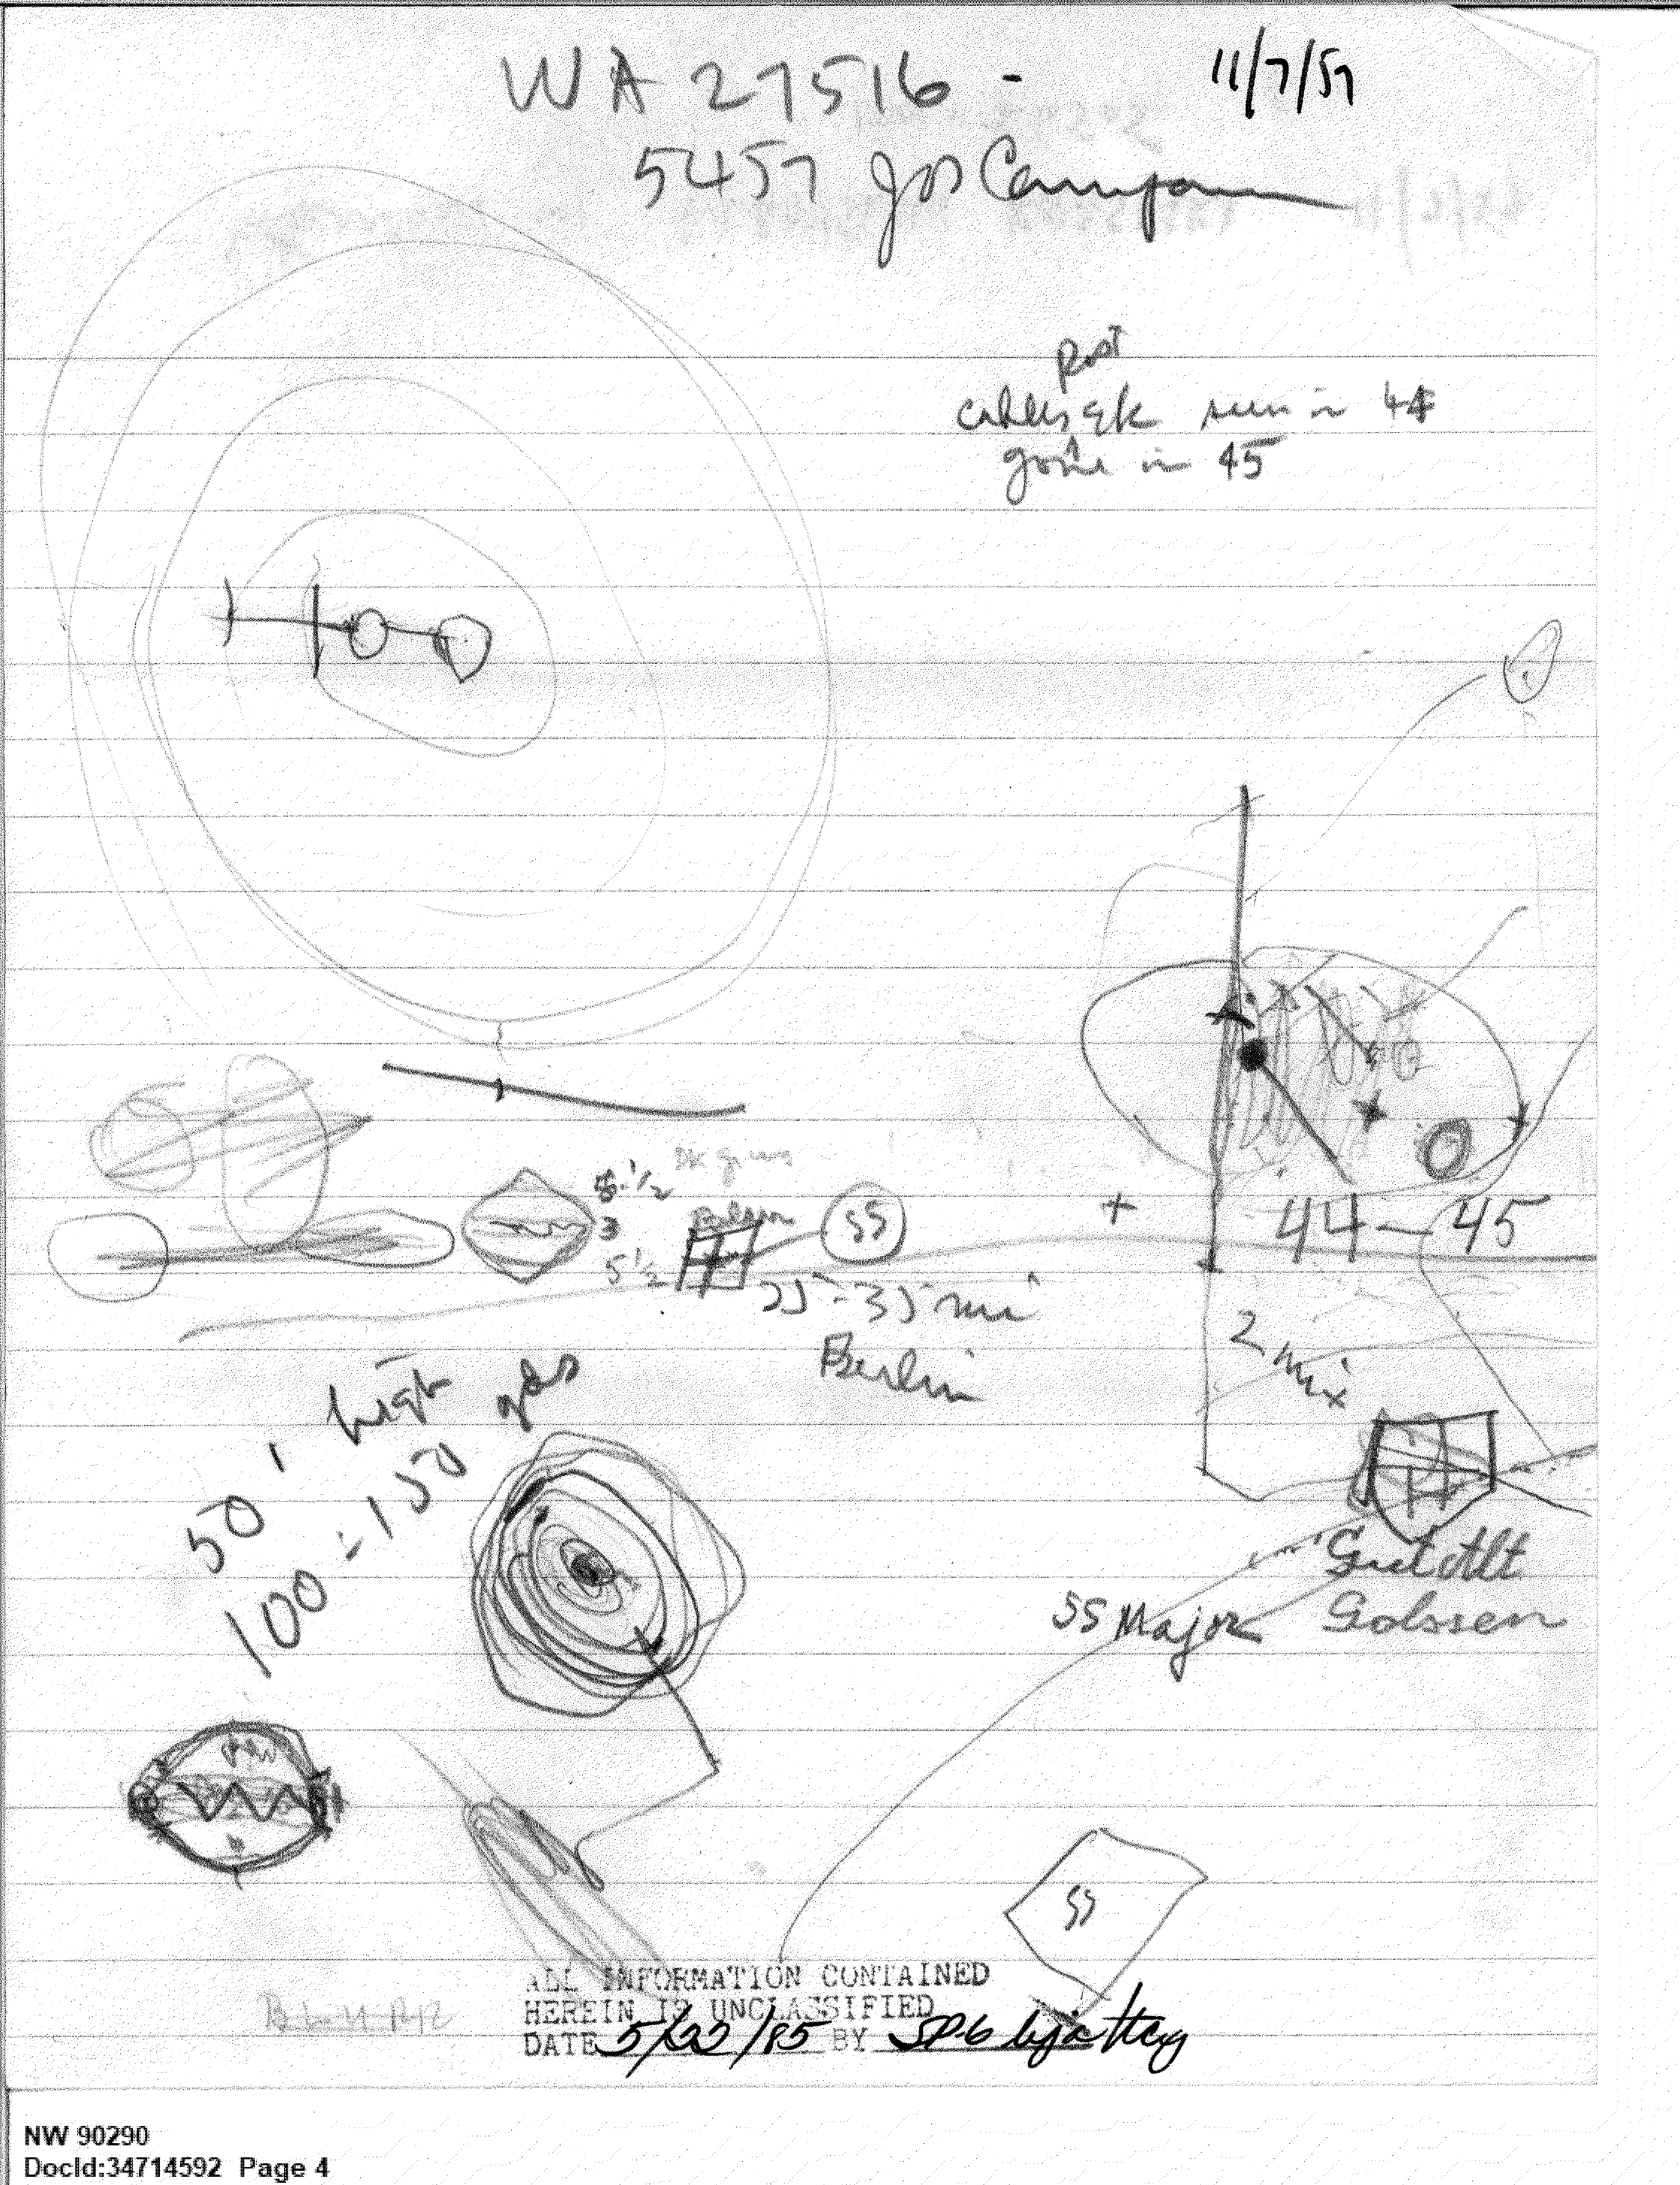 WA 27516 - 11/7/57
5457 Jos Campau
Post
seen in 44
gone in 45
5 1/2
3
5 1/2
SS
25-35 mi
Berlin
+ 44-45
2 mi
50' high
100-150 yds
Gut Alt
Golssen
SS Major
SS
ALL INFORMATION CONTAINED
HEREIN IS UNCLASSIFIED
DATE 5/22/85 BY SP-6
NW 90290
DocId:34714592 Page 4